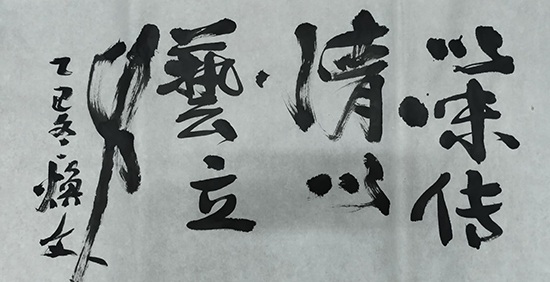 以味传
情以
藝立
身
乙巳冬焕文